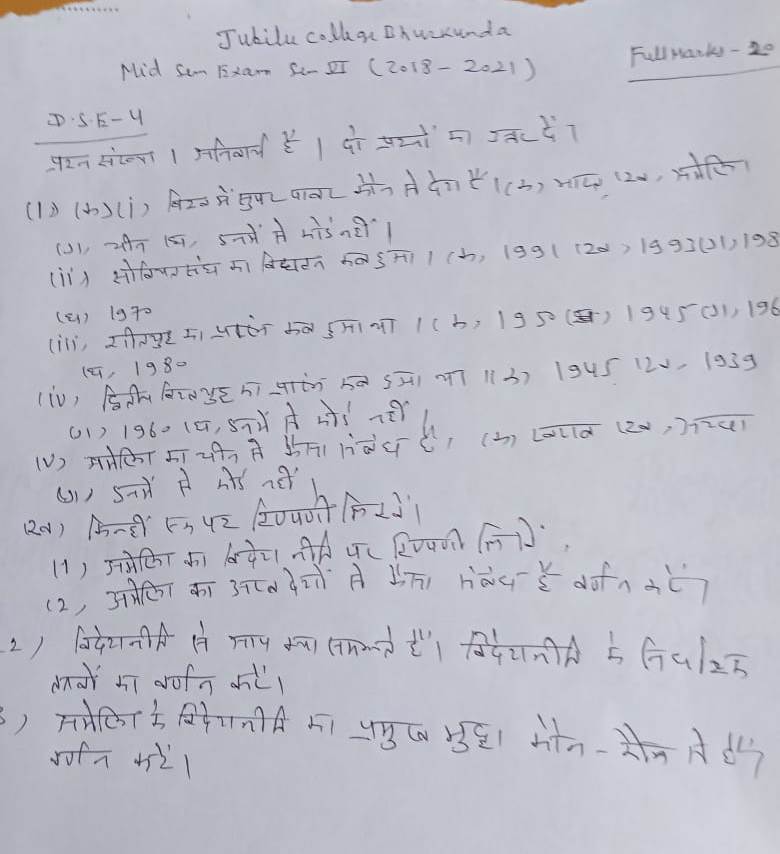 Jubilee College Bhurkunda
Mid Sem Exam Sem VI (2018-2021)
Full Marks - 20
D.S.E-4
प्रश्न संख्या 1 अनिवार्य है। दो प्रश्नों का उत्तर दें।
(1) (क) (i) विश्व में सुपर पावर कौन से देश है। (क) भारत (ख) अमेरिका
(ग) चीन (घ) इनमें से कोई नहीं।
(ii) सोवियत संघ का विघटन कब हुआ। (क) 1991 (ख) 1993 (ग) 198
(घ) 1970
(iii) शीतयुद्ध का प्रारंभ कब हुआ था। (क) 1950 (ख) 1945 (ग) 196
(घ) 1980
(iv) द्वितीय विश्वयुद्ध का प्रारंभ कब हुआ था। (क) 1945 (ख) 1939
(ग) 1960 (घ) इनमें से कोई नहीं।
(v) अमेरिका का चीन से कैसा संबंध है, (क) खराब (ख) अच्छा
(ग) इनमें से कोई नहीं।
(ख) किन्हीं एक पर टिप्पणी लिखें।
(1) अमेरिका का विदेश नीति पर टिप्पणी लिखें।
(2) अमेरिका का अरब देशों से कैसा संबंध है वर्णन करें
2) विदेशनीति से आप क्या समझते हैं। विदेशनीति के निर्धारक
तत्वों का वर्णन करें।
3) अमेरिका के विदेशनीति का प्रमुख मुद्दा कौन-कौन से हैं
वर्णन करें।